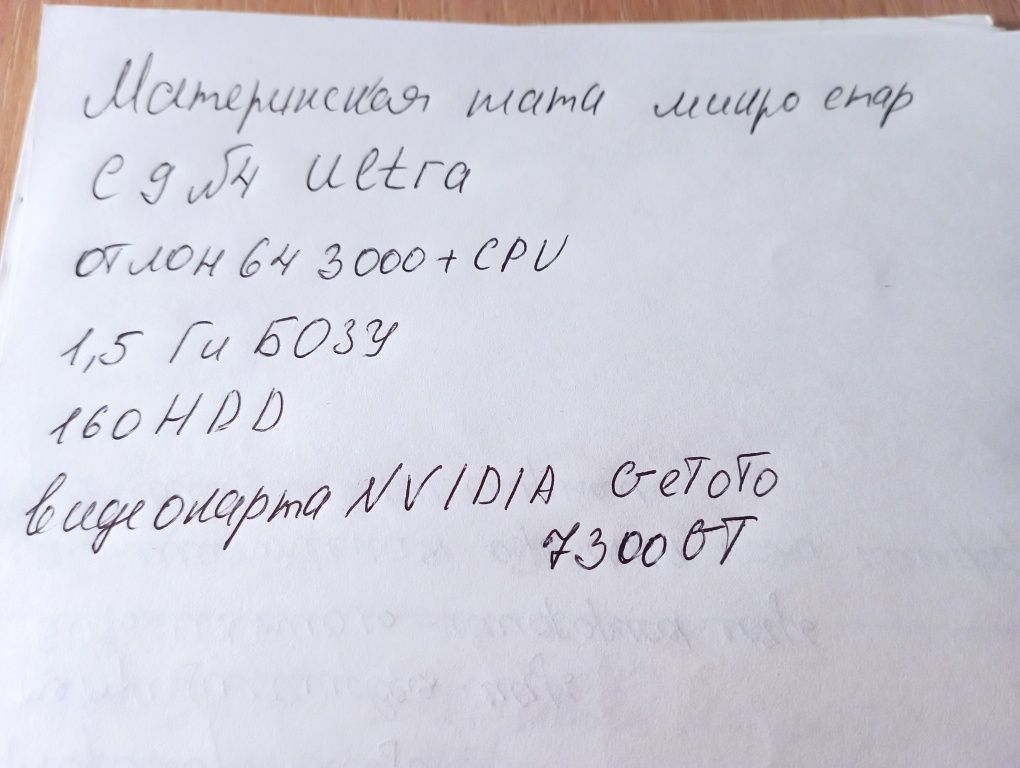 Материнская тата микро спар
С 9 N4 Ultra
отлон 64 3000+ CPU
1,5 Ги БОЗУ
160 HDD
видеокарта NVIDIA GeТоТо
7300 GT